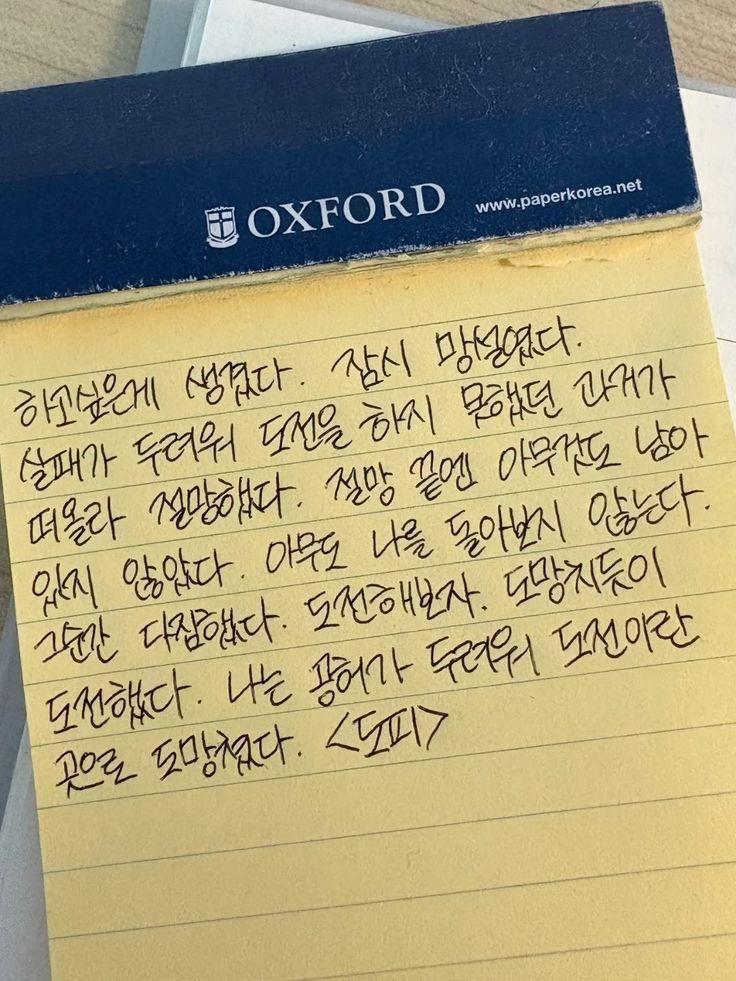 OXFORD www.paperkorea.net
하고싶은게 생겼다. 잠시 망설였다.
실패가 두려워 도전을 하지 못했던 과거가
떠올라 절망했다. 절망 끝엔 아무것도 남아
있지 않았다. 아무도 나를 돌아보지 않는다.
그순간 다짐했다. 도전해보자. 도망치듯이
도전했다. 나는 공허가 두려워 도전이란
곳으로 도망쳤다. <도피>